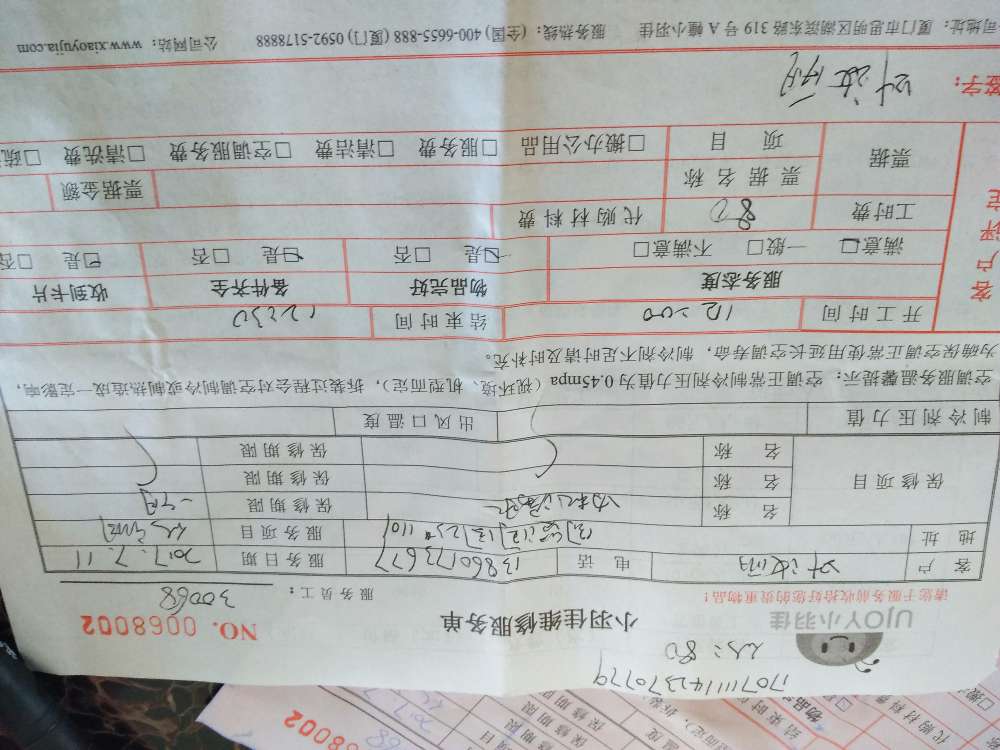 17071111142370779
以：80
UJOY小羽佳
小羽佳维修服务单
NO. 0068002
请您于服务前收拾好您的贵重物品！
服务员工：30068
客 户 电 话 13860173677 服务日期 2017.7.11
地 址 服务项目
保修项目 名 称 保修期限 一个月
名 称 保修期限
名 称 保修期限
制冷剂压力值 出风口温度
空调服务温馨提示：空调正常制冷剂压力值为0.45mpa（视环境、机型而定），拆装过程会对空调制冷或制热造成一定影响，
为确保空调正常使用延长空调寿命，制冷剂不足时请及时补充。
客户评定
开工时间 12:00 结束时间 12:30
服务态度 物品完好 备件齐全 收到卡片
满意☑ 一般□ 不满意□ ☑是 □否 ☑是 □否 ☑是 □否
工时费 80 代购材料费
票据 票据名称 票据金额
项 目 □搬办公用品 □服务费 □清洁费 □空调服务费 □清洗费 □疏
签字：
司地址：厦门市思明区湖滨东路319号A幢小羽佳 服务热线：(全国) 400-6655-888 (厦门) 0592-5178888 公司网站：www.xiaoyujia.com
68002